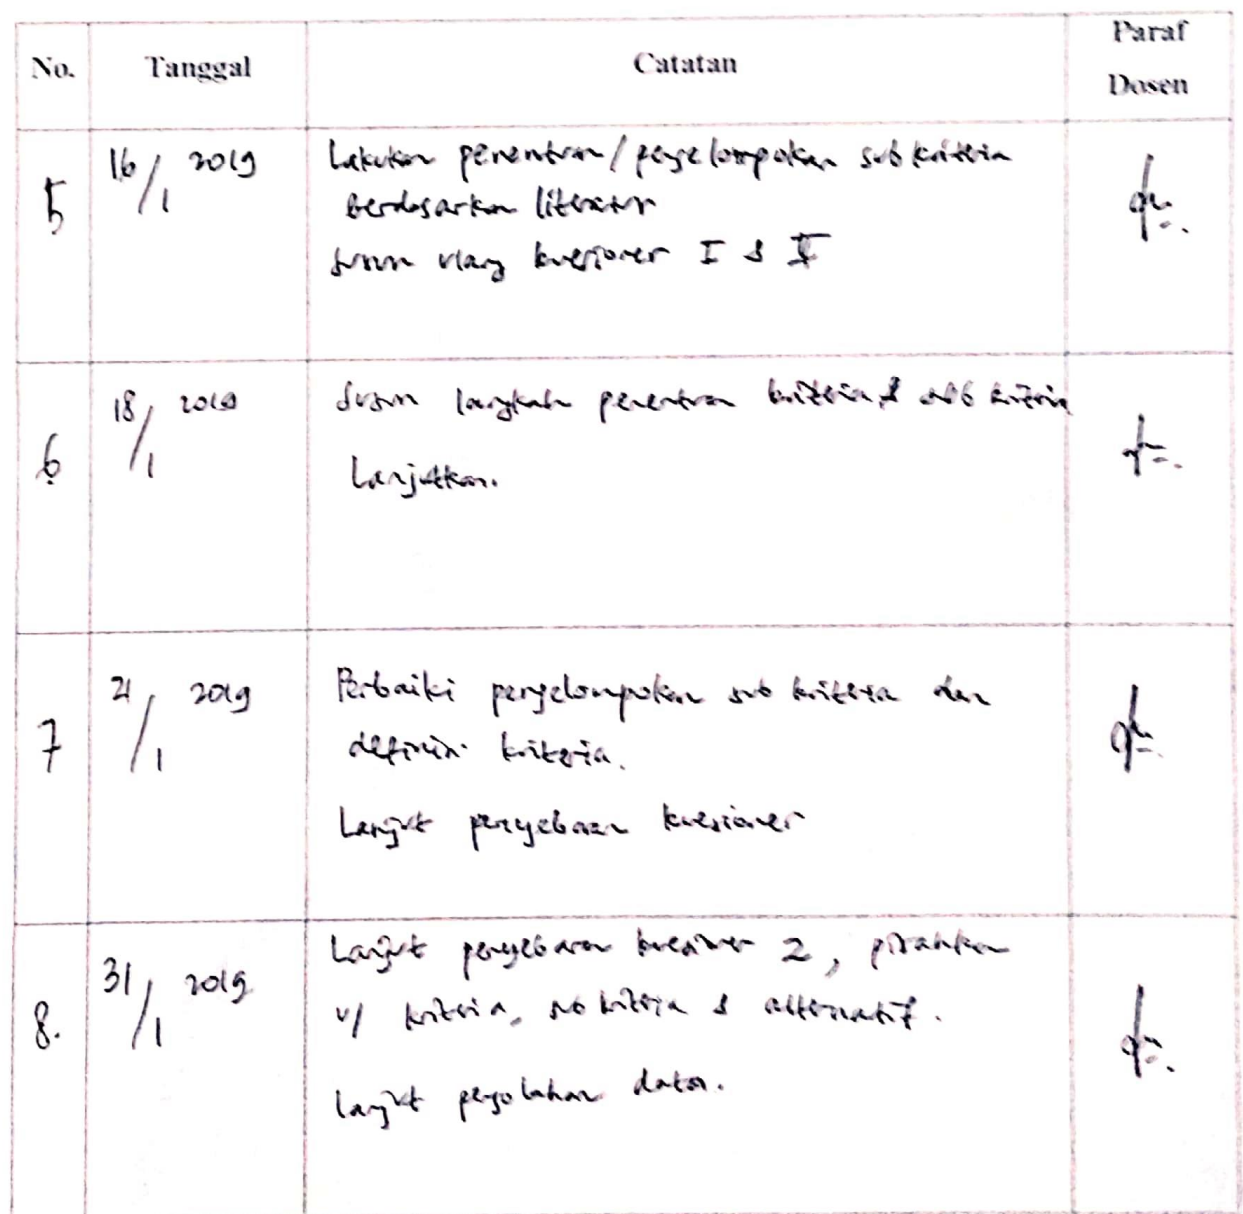 No. Tanggal Catatan Paraf
Dosen
5 16/1 2019 Lakukan penentuan/pengelompokan sub kriteria
berdasarkan literatur
Susun ulang kuesioner I & II
6 18/1 2019 Susun langkah penentuan kriteria & sub kriteria
Lanjutkan.
7 21/1 2019 Perbaiki pengelompokan sub kriteria dan
definisi kriteria.
Lanjut penyebaran kuesioner
8. 31/1 2019 Lanjut penyebaran kuesioner 2, pisahkan
u/ kriteria, sub kriteria & alternatif.
Lanjut pengolahan data.